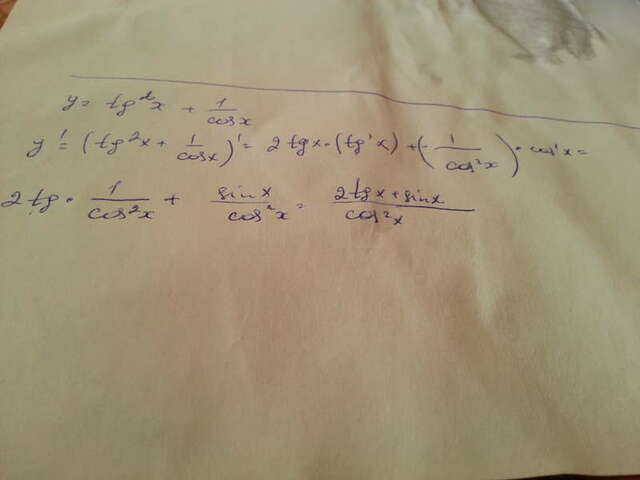 y = tg²x + 1/cosx
y' = (tg²x + 1/cosx)' = 2tgx · (tg'x) + (-1/cos²x) · cos'x =
2tg · 1/cos²x + sinx/cos²x = 2tgx + sinx/cos²x